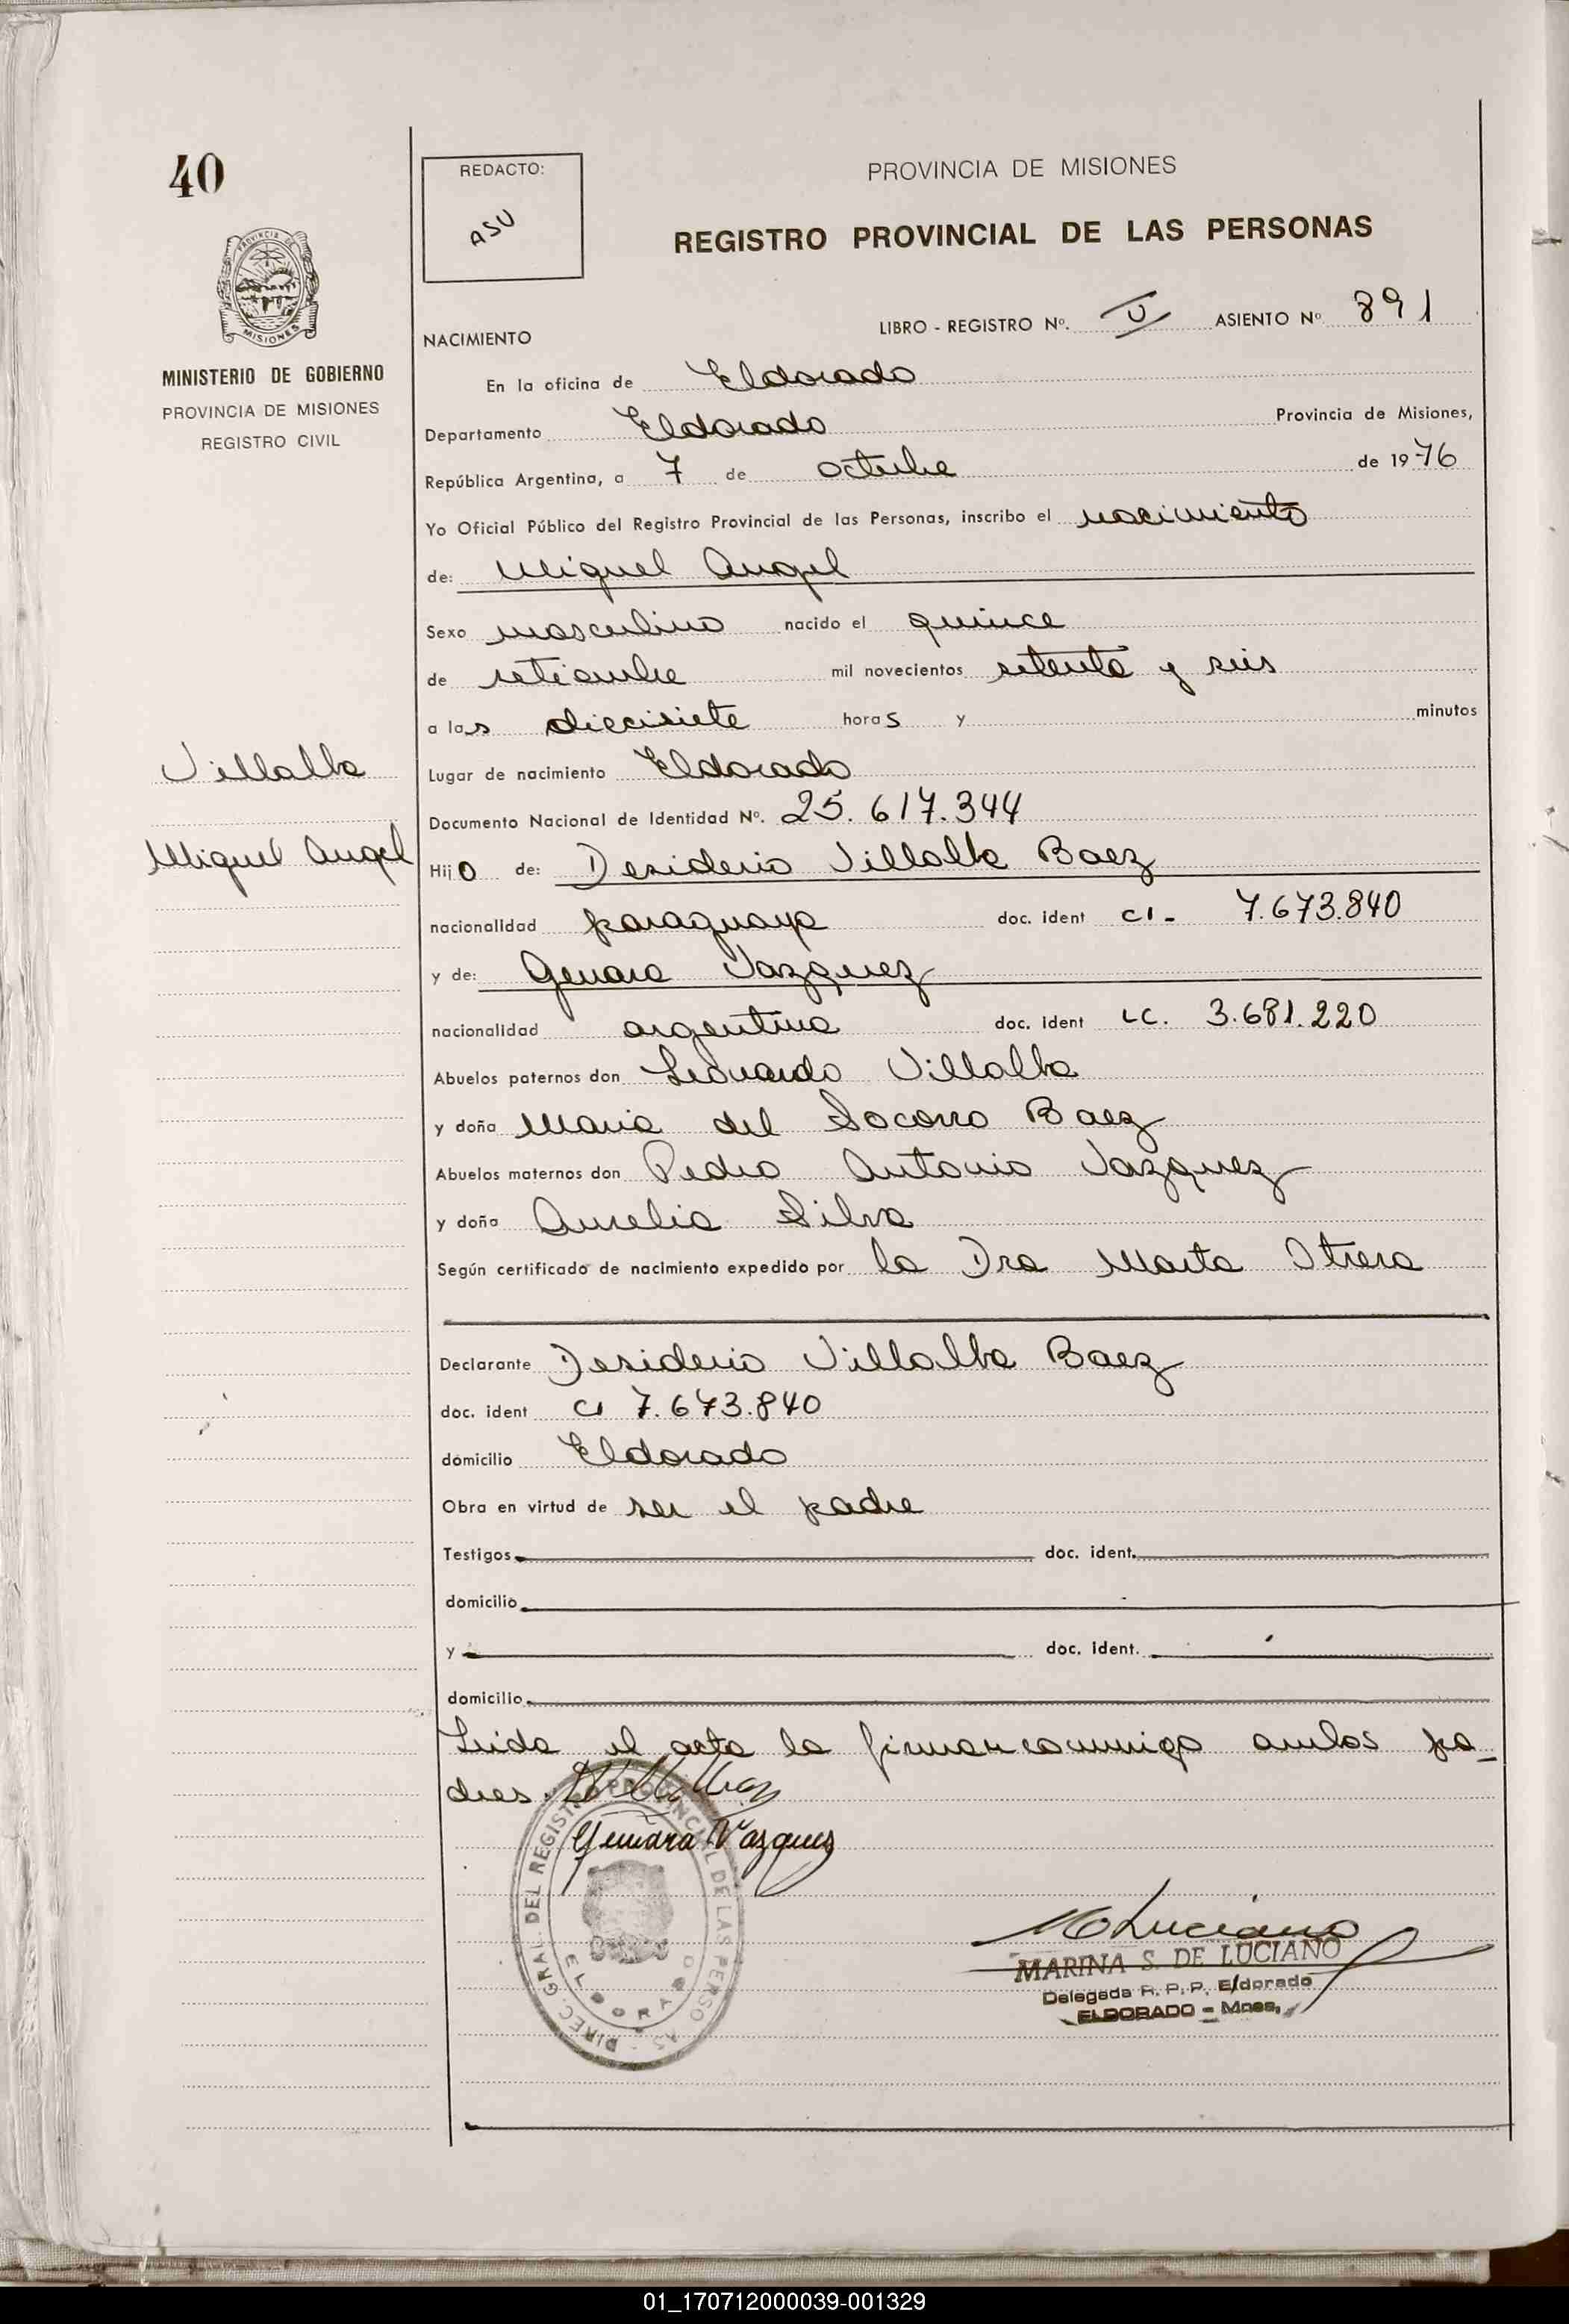 40
REDACTO:
ASU
PROVINCIA DE MISIONES
REGISTRO PROVINCIAL DE LAS PERSONAS
PROVINCIA DE
MISIONES
MINISTERIO DE GOBIERNO
PROVINCIA DE MISIONES
REGISTRO CIVIL
LIBRO - REGISTRO Nº. V ASIENTO Nº 891
NACIMIENTO
En la oficina de Eldorado
Departamento Eldorado Provincia de Misiones,
República Argentina, a 7 de octubre de 1976
Yo Oficial Público del Registro Provincial de las Personas, inscribo el nacimiento
de: Miguel Angel
Sexo masculino nacido el quince
de setiembre mil novecientos setenta y seis
a las diecisiete horas y minutos
Villalba
Lugar de nacimiento Eldorado
Documento Nacional de Identidad Nº. 25.617.344
Miguel Angel
Hijo de: Desiderio Villalba Baez
nacionalidad paraguaya doc. ident CI- 7.673.840
y de: Genara Vazquez
nacionalidad argentina doc. ident LC. 3.681.220
Abuelos paternos don Leonardo Villalba
y doña Maria del Socorro Baez
Abuelos maternos don Pedro Antonio Vazquez
y doña Aurelia Silva
Según certificado de nacimiento expedido por la Dra Marta Otrera
Declarante Desiderio Villalba Baez
doc. ident CI 7.673.840
domicilio Eldorado
Obra en virtud de ser el padre
Testigos doc. ident.
domicilio
y doc. ident.
domicilio
Leida el acta la firman conmigo ambos pa-
dres.
Genara Vazquez
DIREC. GRAL. DEL REGISTRO PROVINCIAL DE LAS PERSONAS
ELDORADO
M Luciano
MARINA S. DE LUCIANO
Delegada R. P. P. Eldorado
ELDORADO - Mnes.
01_170712000039-001329